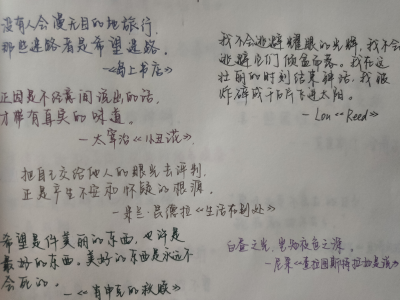 没有人会漫无目的地旅行,
那些迷路者是希望迷路。
—《岛上书店》
正因是不经意间说出的话,
才带有真实的味道。
— 太宰治《小丑花》
把自己交给他人的眼光去评判,
正是产生不安和怀疑的根源。
— 米兰·昆德拉《生活在别处》
希望是件美丽的东西,也许是
最好的东西。美好的东西是永远不
会死的。
—《肖申克的救赎》
我不会逃避耀眼的光辉,我不会
逃避它们倾盆而落。我在这
壮丽的时刻结束神话。我很
炸碎成千百片飞进太阳。
— Lou《Reed》
白昼之光,岂知夜色之深。
— 尼采《查拉图斯特拉如是说》